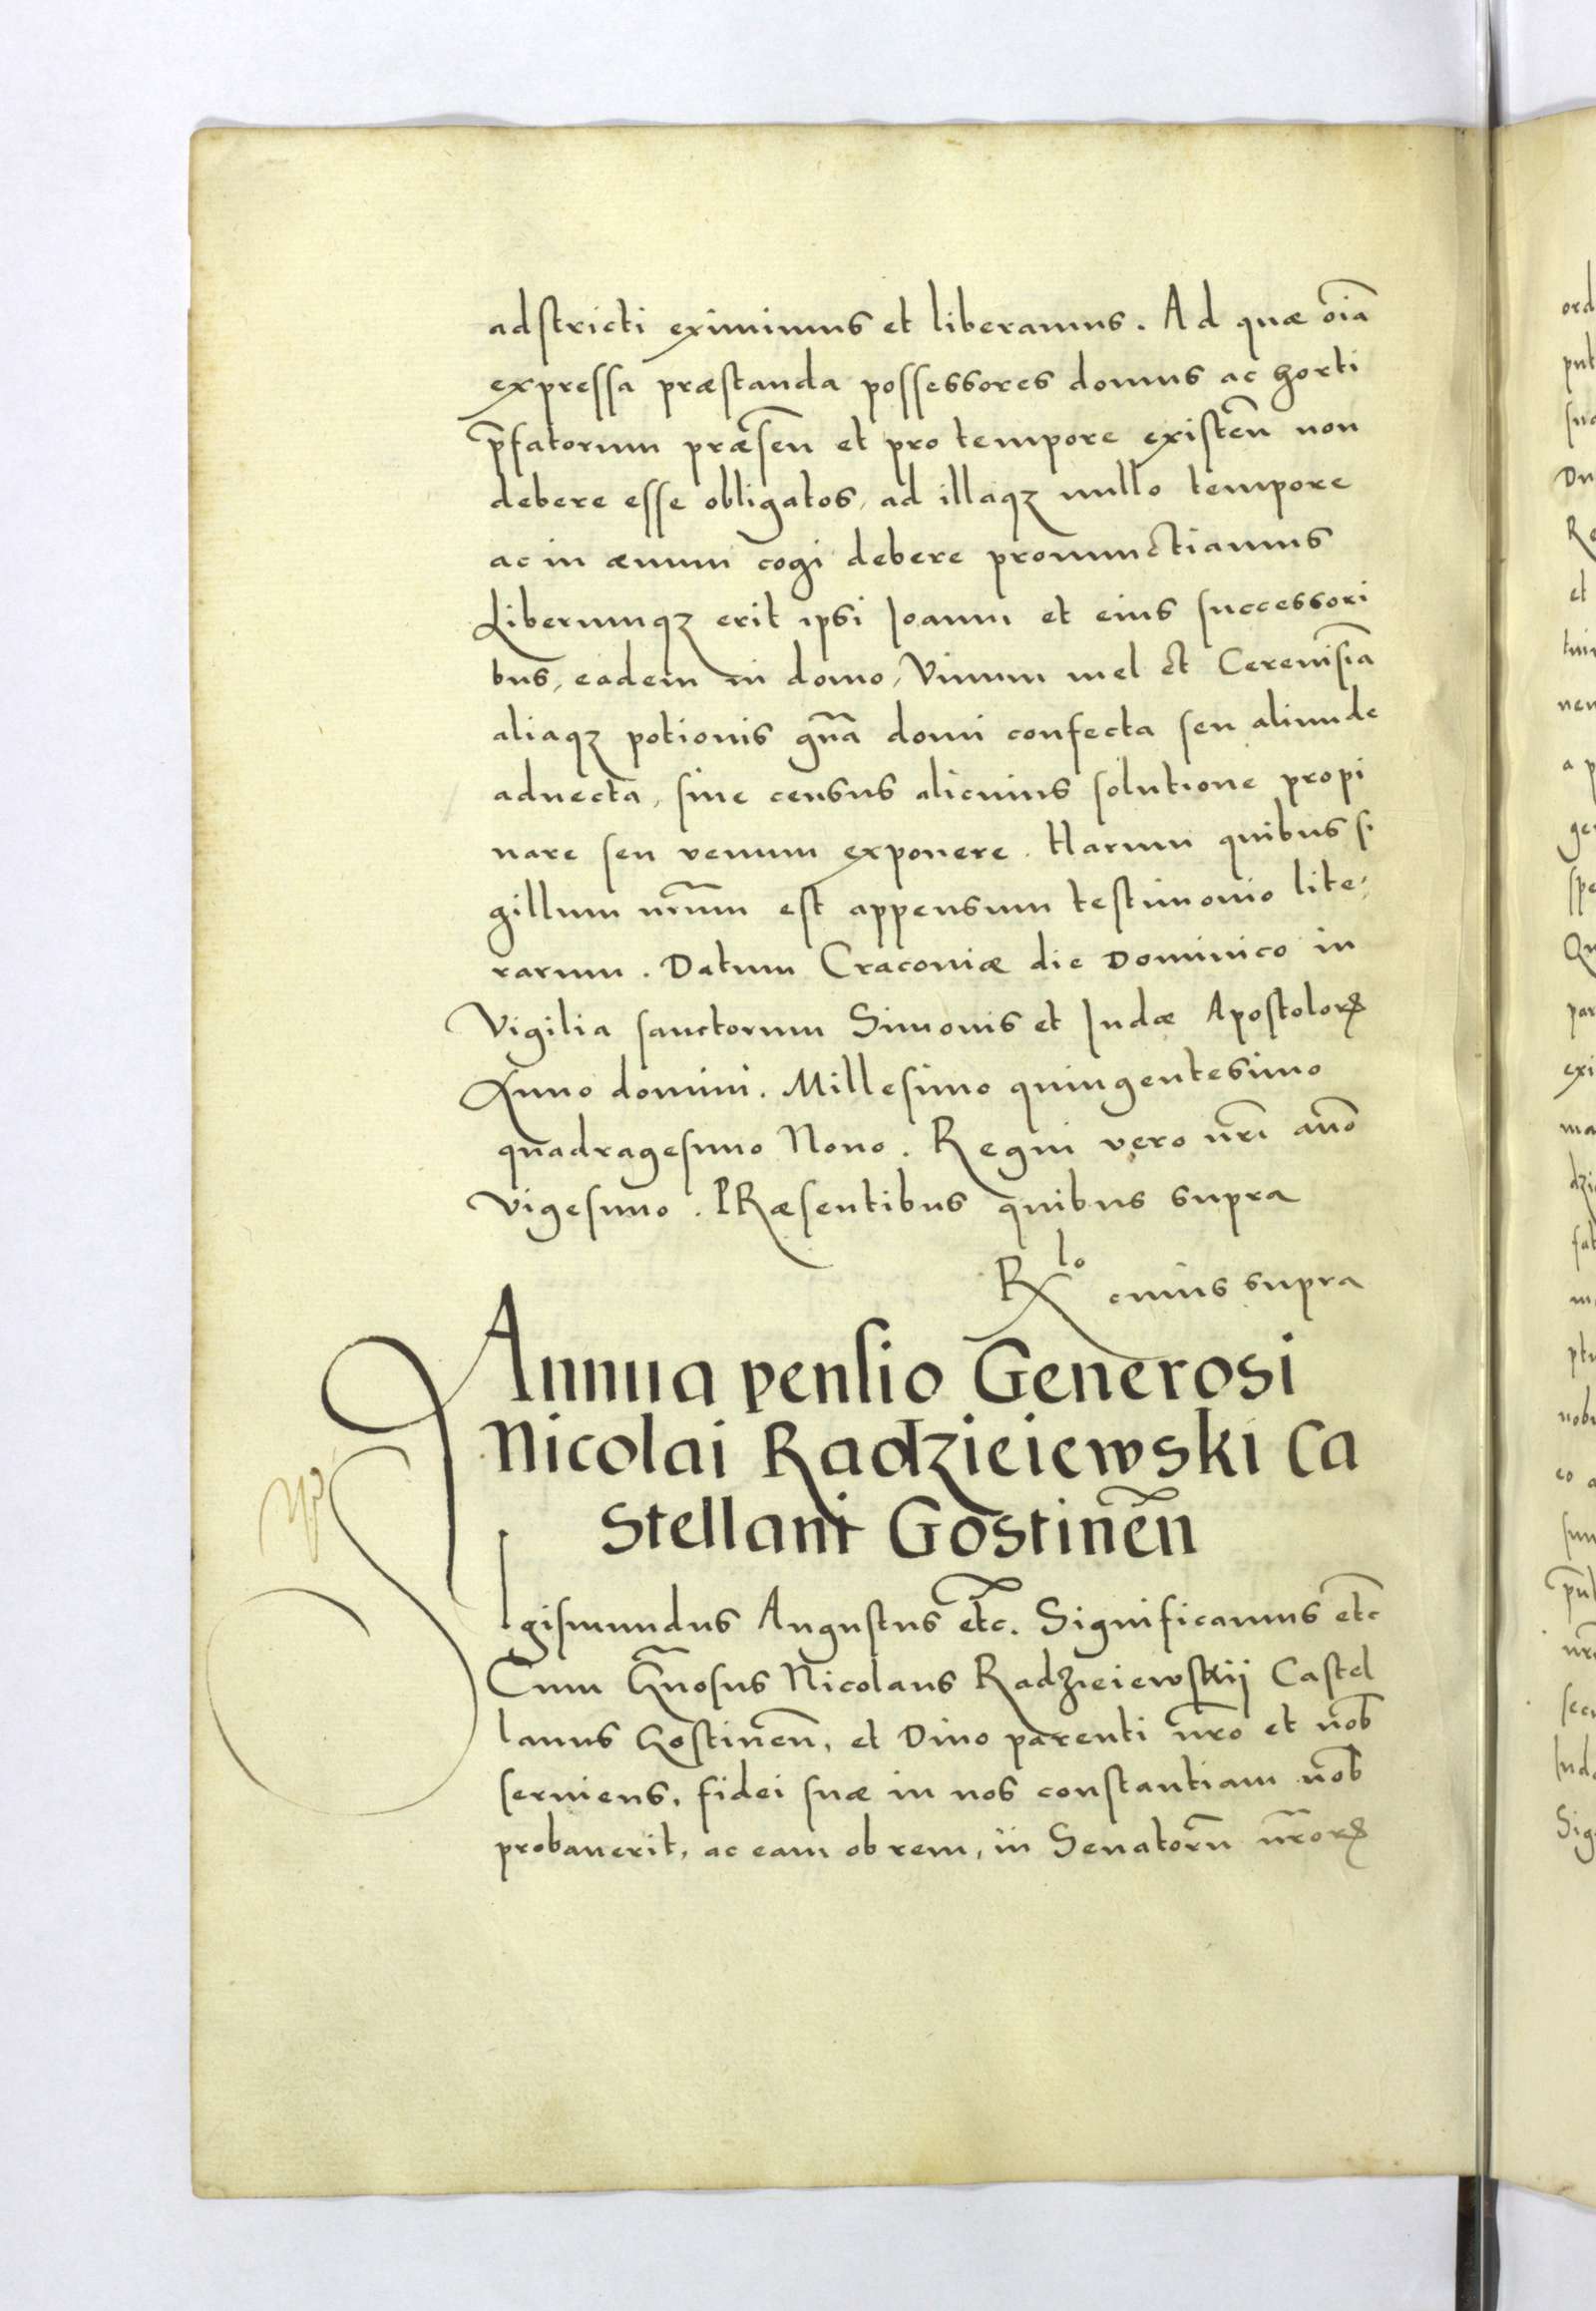 adstricti eximimus et liberamus. Ad quæ oīa
expressa præstanda possessores domus ac horti
p̄fatorum præsen̄ et pro tempore existen̄ non
debere esse obligatos, ad illaqʒ nullo tempore
ac in æuum cogi debere pronunctiamus
Liberumqʒ erit ipsi Ioanni et eius successori
bus, eadem in domo, Vinum mel et Cereuisīa
aliaqʒ potionis gn̄a domi confecta seu aliunde
aduecta, siue census alicuius solutione propi
nare seu venum exponere. Harum quibus si
gillum nr̄um est appensum testimonio lite,
rarum. Datum Cracouiæ die Dominico in
Vigilia sanctorum Simonis et Iudæ Apostoloꝝ
Anno domini. Millesimo quingentesimo
quadragesimo Nono. Regni vero nr̄i anō
vigesimo. PRæsentibus quibus supra
Rlo cuius supra
Annua pensio Generosi
Nicolai Radzieiewski Ca
stellani Gostinen̄
SIgismundus Augustus etc̄. Significamus etc̄
Cum Gn̄osus Nicolaus Radzieiewskij Castel
lanus Gostinen̄, et Diuo parenti nr̄o et nob̄
seruiens, fidei suæ in nos constantiam nob̄
probauerit, ac eam ob rem, in Senatorū nr̄oꝝ